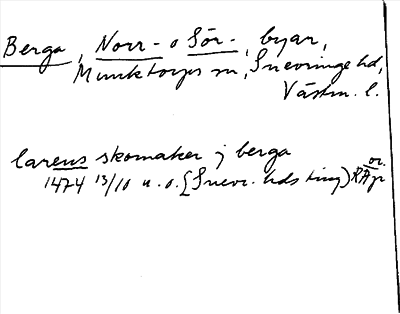 Berga, Norr- o Sör-, byar,
Munktorps sn, Snevringe hd,
Västm. l.
larens skomaker j berga
1474 13/10 u. o. [Snevr. hds ting) RAp
or.